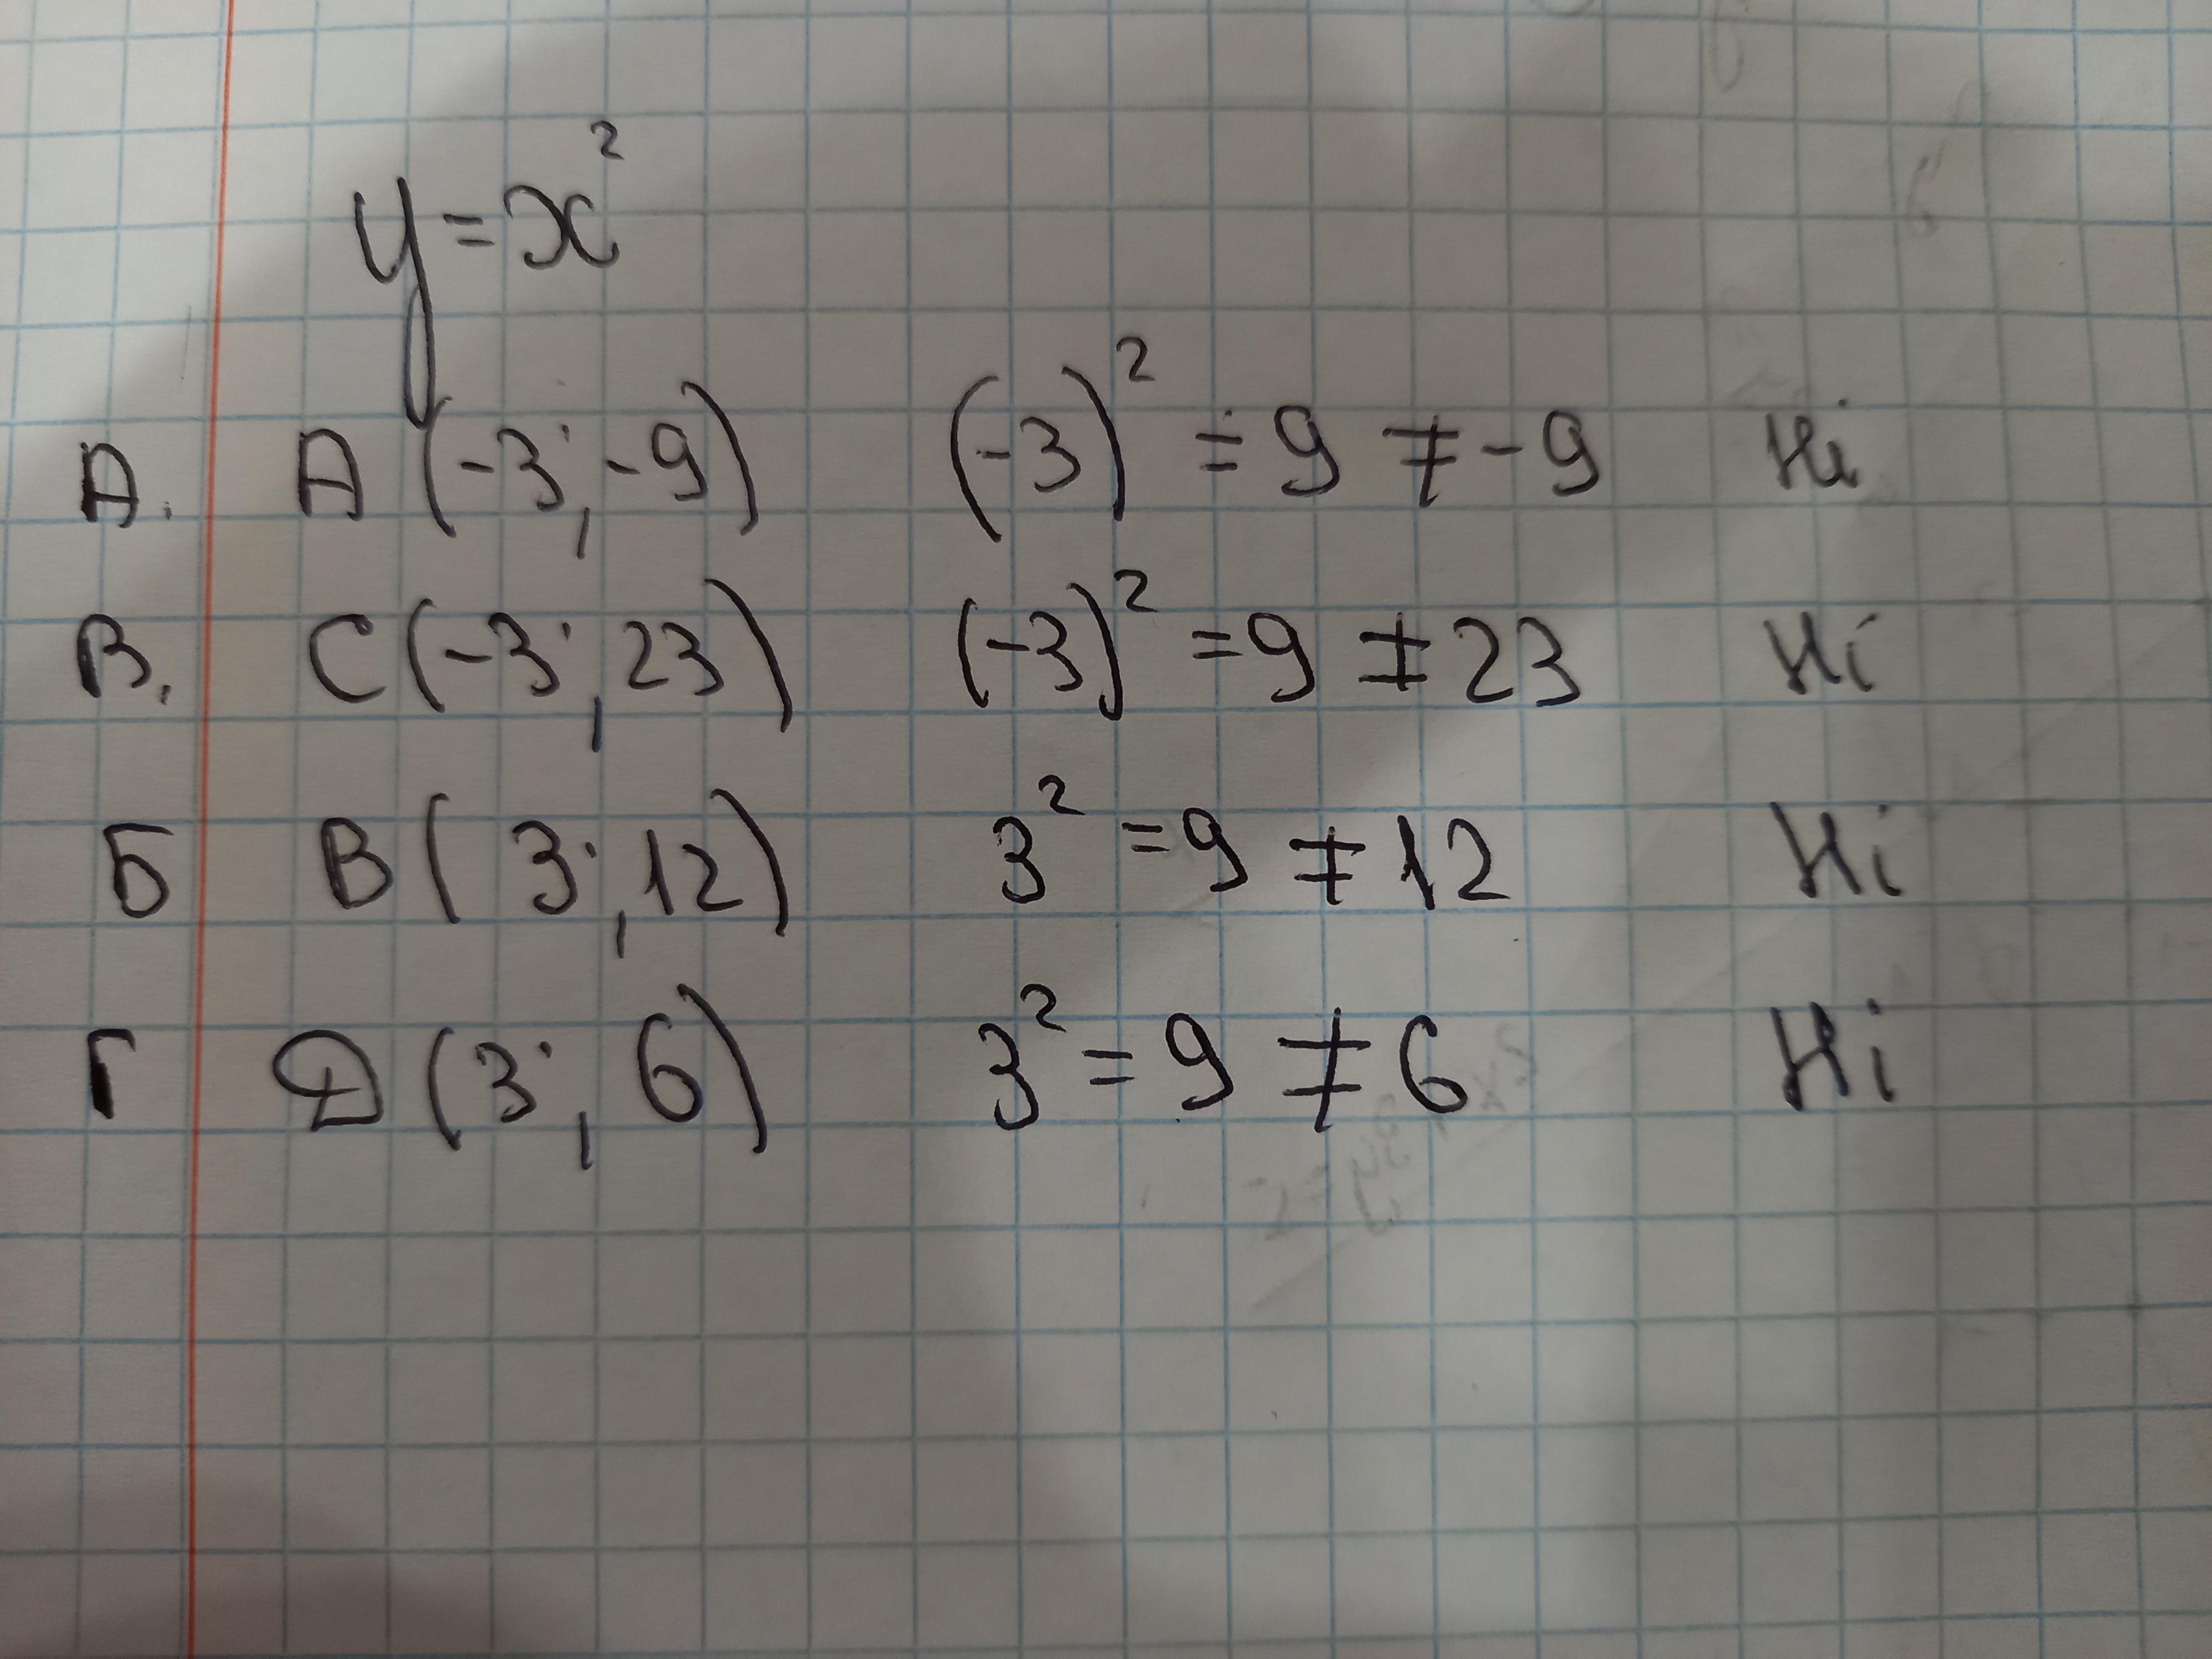 y = x²
А. А (-3; -9) (-3)² = 9 ≠ -9 Ні
В. С (-3; 23) (-3)² = 9 ≠ 23 Ні
Б В ( 3; 12) 3² = 9 ≠ 12 Ні
Г Д (3; 6) 3² = 9 ≠ 6 Ні